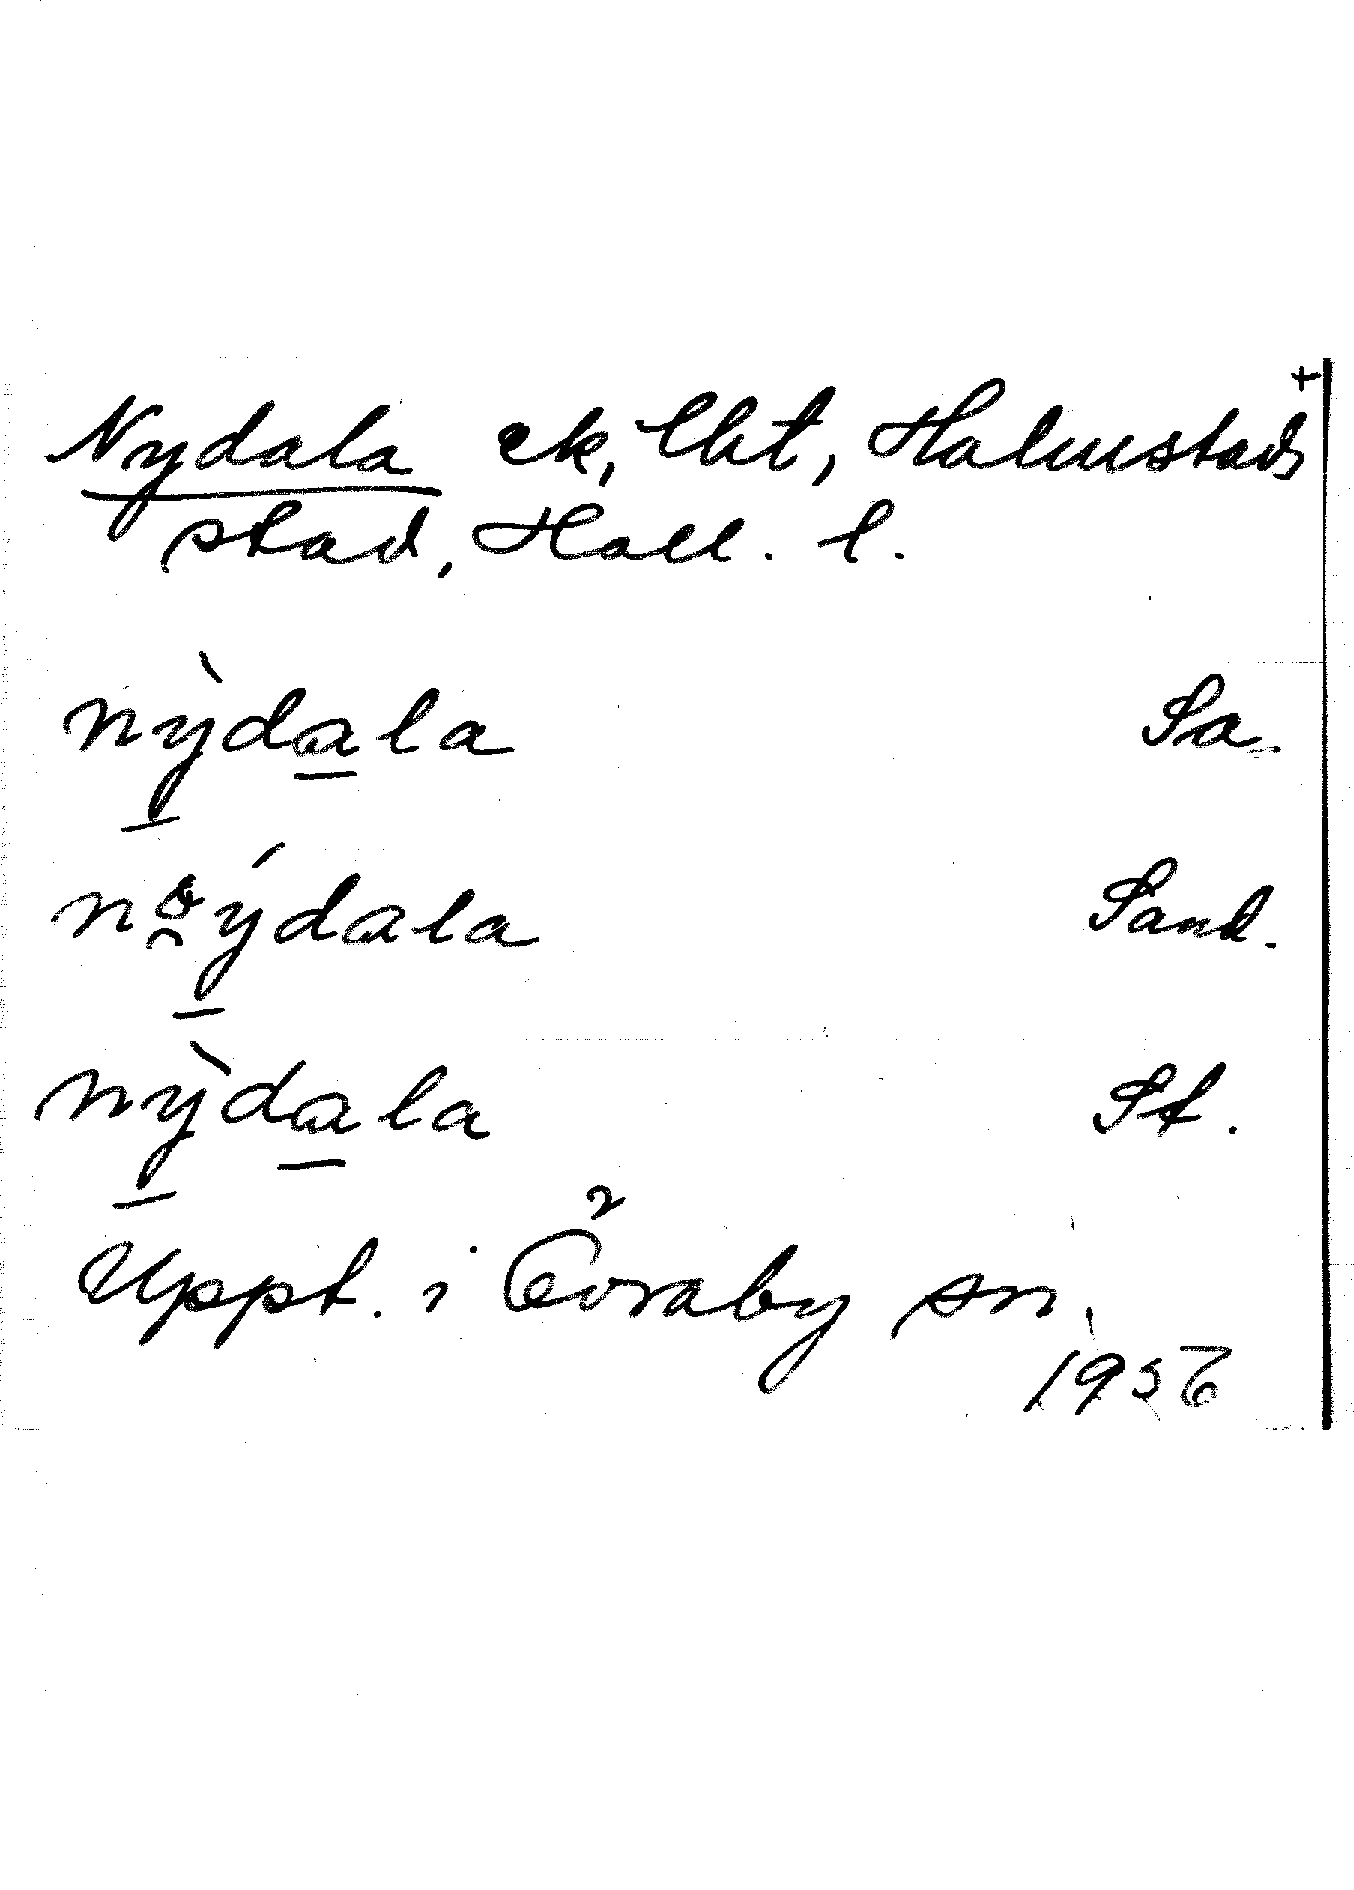 +
Nydala ek, lht, Halmstads
stad, Hall. l.
nỳdala Sa.
nöýdala Sand.
nỳdala St.
Uppt. i Övraby sn.
1956